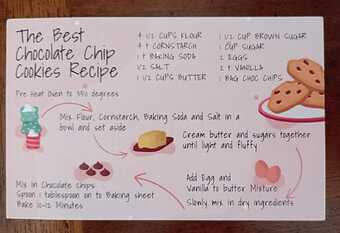 The Best
Chocolate Chip
Cookies Recipe
4 1/2 CUPS FLOUR
4 t CORNSTARCH
1 t BAKING SODA
1/2 SALT
1 1/2 CUPS BUTTER
1 1/2 CUP BROWN SUGAR
1 CUP SUGAR
2 EGGS
2 t VANILLA
1 BAG CHOC CHIPS
Pre Heat Oven to 350 degrees
Mix Flour, Cornstarch, Baking Soda and Salt in a
bowl and set aside
Cream butter and sugars together
until light and fluffy
Add Egg and
Vanilla to butter Mixture
Slowly mix in dry ingredients
Mix in Chocolate Chips
Spoon 1 tablespoon on to Baking sheet
Bake 10-12 Minutes